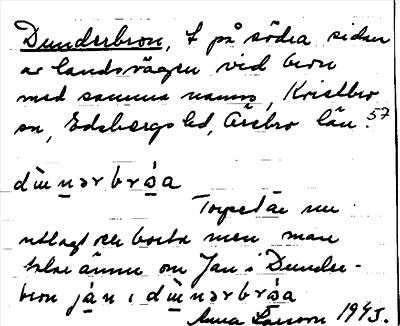 Dunderbron, t på södra sidan
av landsvägen vid bron
med samma namn, Kristbro
sn, Edsbergs hd, Örebro län. 57
dɯ̀n̠ərbrǫ́a
Torpet är nu
utlagt och borta men man
talar ännu om Jan i Dunder-
bron jɑ̀n ı dɯ̀n̠ərbrǫ́a
Anna Larsson 1943.